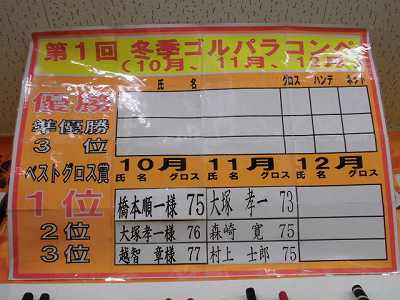 第1回 冬季ゴルパラコンペ
(10月、11月、12月
氏 名 グロス ハンデ ネット
優勝
準優勝
3 位
ベストグロス賞 10月 11月 12月
氏 名 グロス 氏 名 グロス 氏 名 グロス
1位 橋本順一様 75 大塚 孝一 73
2位 大塚孝一様 76 森崎 寛 75
3位 越智 章様 77 村上 士郎 75